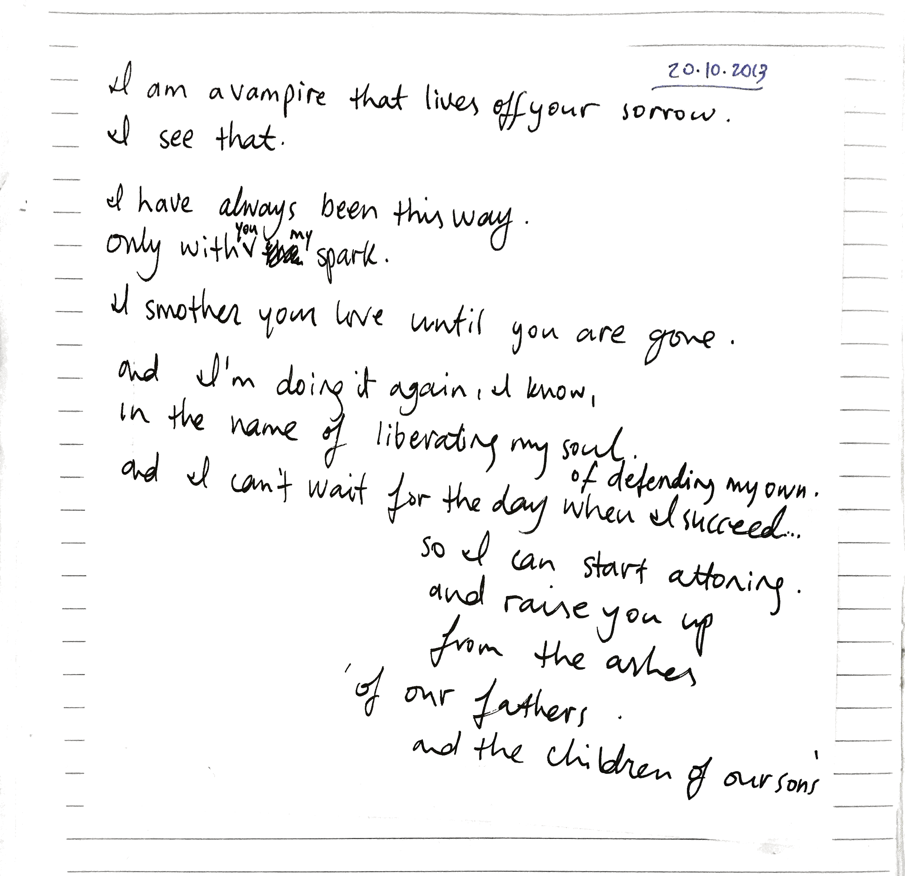 20.10.2013
I am a vampire that lives off your sorrow.
I see that.
I have always been this way.
only with you my spark.
I smother your love until you are gone.
and I'm doing it again, I know,
in the name of liberating my soul.
of defending my own.
and I can't wait for the day when I succeed...
so I can start attoning.
and raise you up
from the ashes
'of our fathers.
and the children of our sons'